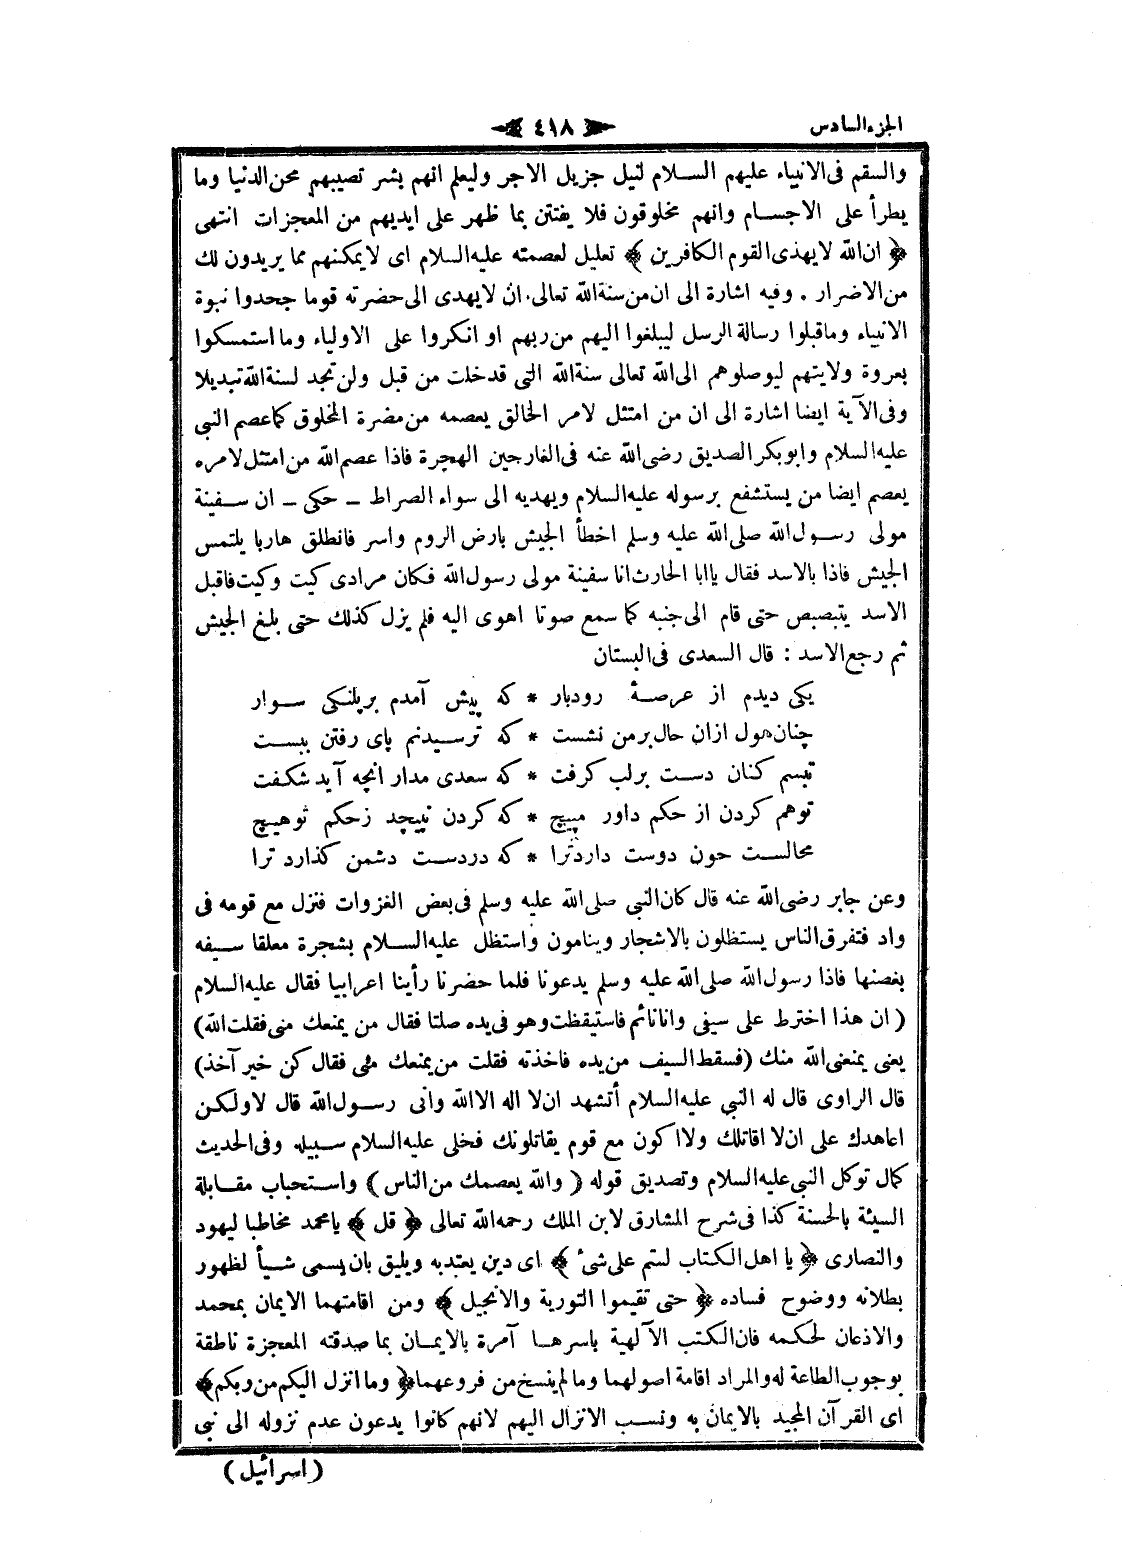 الجزء السادس
٤١٨
والسقم فى الانبياء عليهم السلام لنيل جزيل الاجر وليعلم انهم بشر تصيبهم محن الدنيا وما
يطرأ على الاجسام وانهم مخلوقون فلا يفتتن بما ظهر على ايديهم من المعجزات انتهى
﴿ ان الله لا يهذى القوم الكافرين ﴾ تعليل لعصمته عليه السلام اى لا يمكنهم مما يريدون لك
من الاضرار . وفيه اشارة الى ان من سنة الله تعالى ان لا يهدى الى حضرته قوما جحدوا نبوة
الانبياء وما قبلوا رسالة الرسل ليبلغوا اليهم من ربهم او انكروا على الاولياء وما استمسكوا
بعروة ولايتهم ليوصلوهم الى الله تعالى سنة الله التى قد خلت من قبل ولن تجد لسنة الله تبديلا
وفى الآية ايضا اشارة الى ان من امتثل لامر الخالق يعصمه من مضرة المخلوق كما عصم النبى
عليه السلام وابوبكر الصديق رضى الله عنه فى الغار حين الهجرة فاذا عصم الله من امتثل لامره
يعصم ايضا من يستشفع برسوله عليه السلام ويهديه الى سواء الصراط ــ حكى ــ ان سفينة
مولى رسول الله صلى الله عليه وسلم اخطأ الجيش بارض الروم واسر فانطلق هاربا يلتمس
الجيش فاذا بالاسد فقال يا ابا الحارث انا سفينة مولى رسول الله فكان مرادى كيت وكيت فاقبل
الاسد يتبصبص حتى قام الى جنبه كما سمع صوتا اهوى اليه فلم يزل كذلك حتى بلغ الجيش
ثم رجع الاسد : قال السعدى فى البستان
يكى ديدم از عرصۀ رودبار * كه پيش آمدم بر پلنكى سوار
چنان هول ازان حال بر من نشست * كه ترسيدنم پاى رفتن ببست
تبسم كنان دست بر لب كرفت * كه سعدى مدار انچه آيد شكفت
توهم كردن از حكم داور مپيچ * كه كردن نپيچد ز حكم تو هيچ
محالست حون دوست دارد ترا * كه در دست دشمن كذارد ترا
وعن جابر رضى الله عنه قال كان النبى صلى الله عليه وسلم فى بعض الغزوات فنزل مع قومه فى
واد فتفرق الناس يستظلون بالاشجار وينامون واستظل عليه السلام بشجرة معلقا سيفه
بغصنها فاذا رسول الله صلى الله عليه وسلم يدعونا فلما حضرنا رأينا اعرابيا فقال عليه السلام
( ان هذا اخترط على سيفى وانا نائم فاستيقظت وهو فى يده صلتا فقال من يمنعك منى فقلت الله )
يعنى يمنعنى الله منك ( فسقط السيف من يده فاخذته فقلت من يمنعك منى فقال كن خير آخذ )
قال الراوى قال له النبي عليه السلام أتشهد ان لا اله الا الله وانى رسول الله قال لا ولكن
اعاهدك على ان لا اقاتلك ولا اكون مع قوم يقاتلونك فخلى عليه السلام سبيله وفى الحديث
كمال توكل النبى عليه السلام وتصديق قوله ( والله يعصمك من الناس ) واستحباب مقابلة
السيئة بالحسنة كذا فى شرح المشارق لابن الملك رحمه الله تعالى ﴿ قل ﴾ يا محمد مخاطبا ليهود
والنصارى ﴿ يا اهل الكتاب لستم على شىء ﴾ اى دين يعتد به ويليق بان يسمى شيأ لظهور
بطلانه ووضوح فساده ﴿ حتى تقيموا التورية والانجيل ﴾ ومن اقامتهما الايمان بمحمد
والاذعان لحكمه فان الكتب الآلهية باسرها آمرة بالايمان بما صدقته المعجزة ناطقة
بوجوب الطاعة له والمراد اقامة اصولهما وما لم ينسخ من فروعهما ﴿ وما انزل اليكم من ربكم ﴾
اى القرآن المجيد بالايمان به ونسب الانزال اليهم لانهم كانوا يدعون عدم نزوله الى نبى
( اسرائيل )